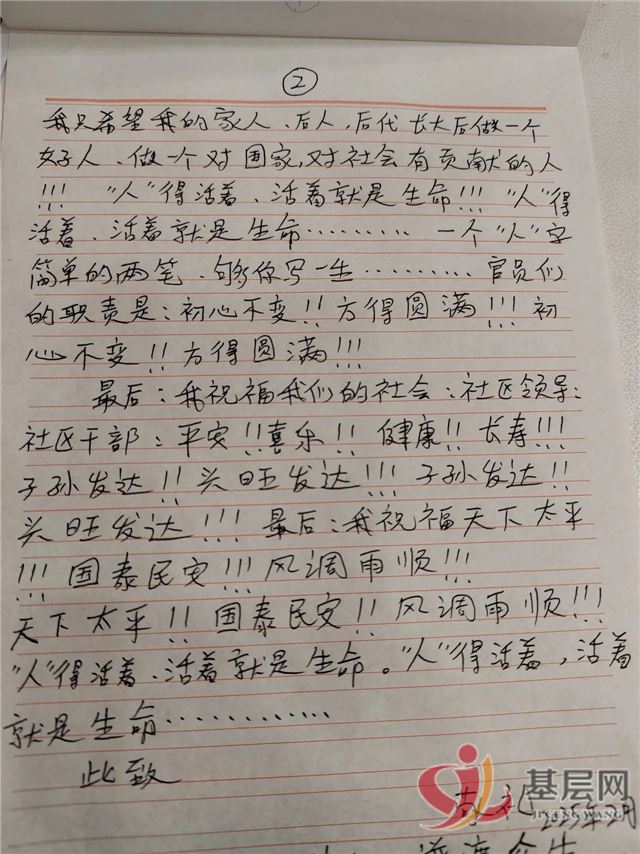 ②
我只希望我的家人、后人,后代长大后做一个
好人、做一个对国家,对社会有贡献的人
!!! "人"得活着、活着就是生命!!! "人"得
活着、活着就是生命………… 一个"人"字
简单的两笔、够你写一生………… 官员们
的职责是:初心不变!!方得圆满!!!初
心不变!!方得圆满!!!
最后:我祝福我们的社会:社区领导:
社区干部:平安!!喜乐!!健康!!长寿!!!
子孙发达!!兴旺发达!!!子孙发达!!
兴旺发达!!!最后:我祝福天下太平
!!!国泰民安!!!风调雨顺!!!
天下太平!!国泰民安!!风调雨顺!!!
"人"得活着、活着就是生命。"人"得活着,活着
就是生命…………
此致
敬礼 2025年2月
基层网
JI CENG WANG